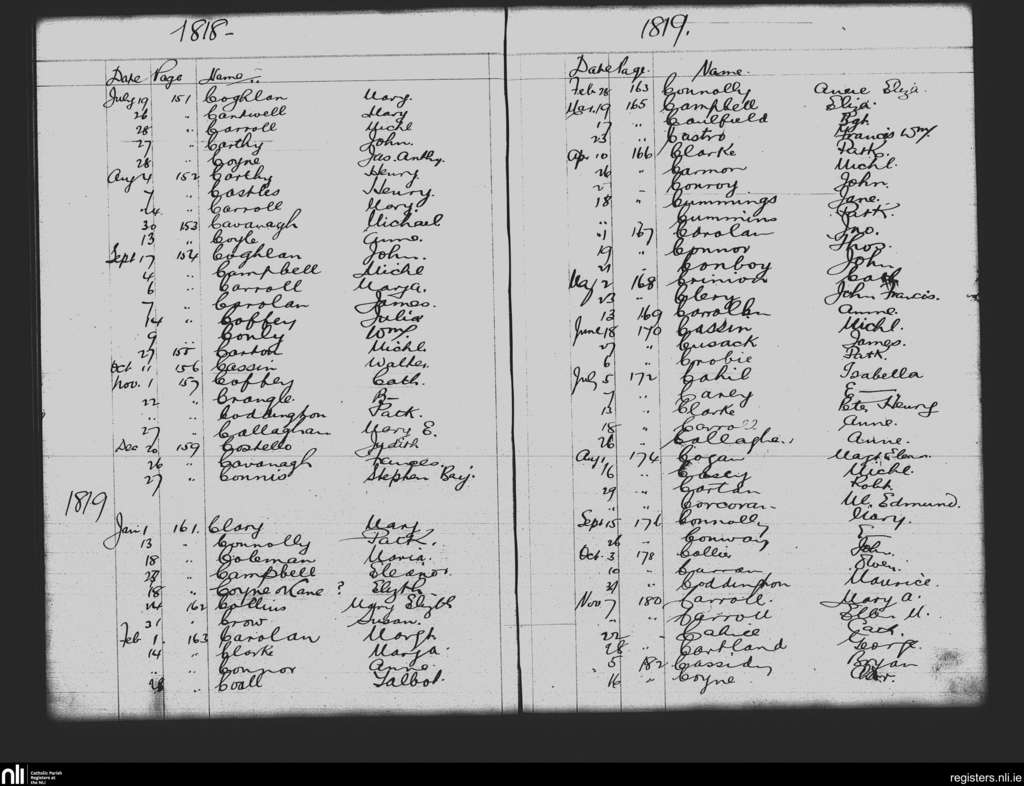 1818-
Date Page Name
July 19 151 Coghlan Mary.
26 " Cantwell Mary
28 " Carroll Michl
27 " Carthy John.
28 " Coyne Jas. Anthy.
Aug 4 152 Carthy Henry
7 " Castles Henry.
24 " Carroll Mary.
30 153 Cavanagh Michael
13 " Coyle Anne.
Sept 17 154 Coghlan John.
4 " Campbell Michl
6 " Carroll Marga.
7 " Carolan James.
14 " Coffey Julia
9 " Conly Wm
27 155 Carton Michl.
Oct 11 156 Cassin Walter.
Nov. 1 157 Coffey Cath.
22 " Crangle B—
" " Coddington Patk.
27 " Callaghan Mary E.
Dec 20 159 Costello Judith
26 " Cavanagh Frances
27 " Connis Stephen Benj.
1819
Jan 1 161. Clary Mary
13 " Connolly Patk.
18 " Coleman Maria.
28 " Campbell Eleanor.
18 " Coyne or Kane ? Elizth
24 162 Collins Mary Elizth
31 " Crow Susan.
Feb 1. 163 Carolan Margt
14 " Clarke Marga.
" " Connor Anne.
28 " Coall Talbot.
1819.
Date Page. Name.
Feb 28 163 Connolly Anne Eliza.
Mar. 19 165 Campbell Eliza.
17 " Caulfield
23 " Castro Francis Wm
Ap. 10 166 Clarke Patk.
26 " Carmon Michl.
2 " Conroy John.
18 " Cummings Jane.
" Cummins Patk.
" 167 Carolan Jno.
19 " Connor Thos.
21 Conboy John
May 2 168 Crinion Cath
23 " Clery John Francis.
13 169 Carrollan Anne.
June 18 170 Cassin Michl.
27 " Cusack James.
6 " Crobie Patk.
July 5 172 Cahil Isabella
7 " Carey E—
13 " Clarke Peter Henry
18 " Carroll Anne.
26 " Callagher Anne.
Aug 1 174 Cogan Magt Elenr.
16 " Casey Michl.
29 " Cartan Robt.
" Corcoran Wm. Edmund.
Sept 15 176 Connolly Mary.
26 " Conway E—
Oct. 3 178 Collier John.
10 " Curran Owen.
31 " Coddington Maurice.
Nov 7 180 Carroll. Mary A.
" " Carroll Ellen M.
22 " Cahill Cath.
28 " Cartland George.
5 182 Cassidy Bryan
16 " Coyne
nli Catholic Parish Registers at the NLI
registers.nli.ie